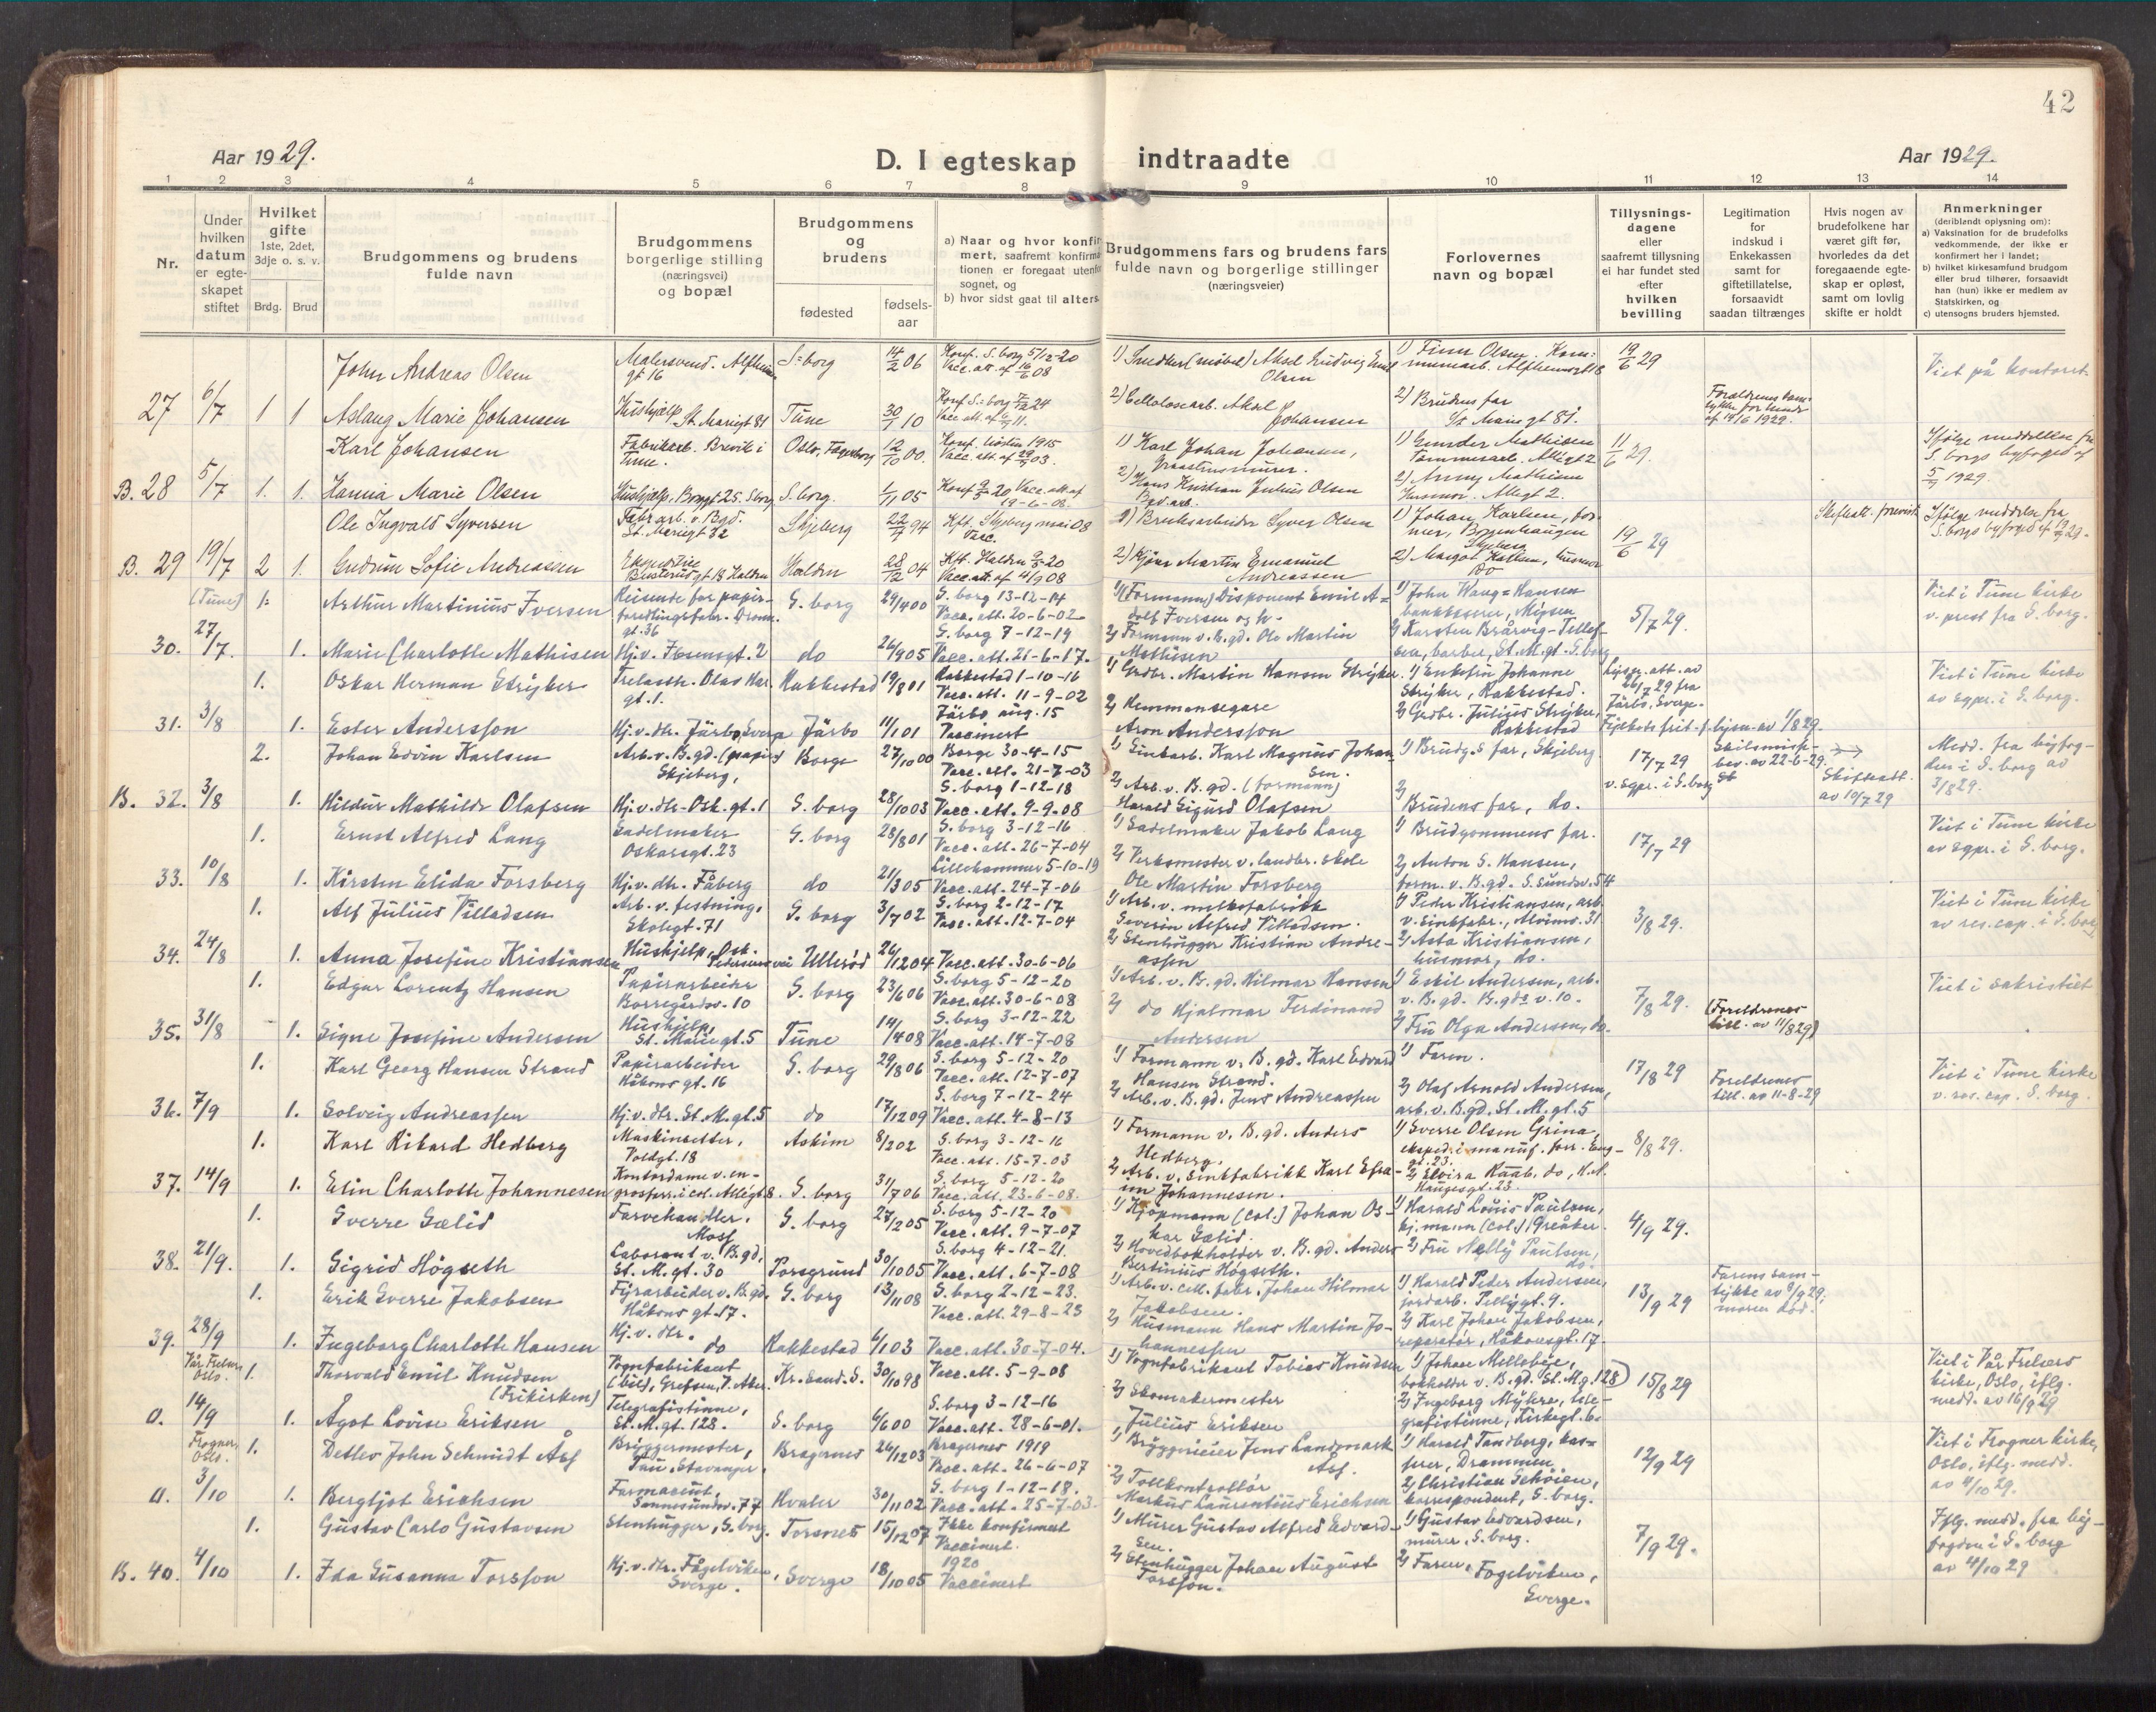 42
Aar 1929.
D. I egteskap indtraadte
Aar 1929.
1 2 3 4 5 6 7 8 9 10 11 12 13 14
Nr.
Under hvilken datum er egteskapet stiftet
Hvilket gifte 1ste, 2det, 3dje o. s. v.
Brdg. Brud
Brudgommens og brudens fulde navn
Brudgommens borgerlige stilling (næringsvei) og bopæl
Brudgommens og brudens
fødested
fødsels-aar
a) Naar og hvor konfirmert, saafremt konfirmationen er foregaat utenfor sognet, og
b) hvor sidst gaat til alters
Brudgommens fars og brudens fars fulde navn og borgerlige stillinger (næringsveier)
Forlovernes navn og bopæl
Tillysnings-dagene eller saafremt tillysning ei har fundet sted efter hvilken bevilling
Legitimation for indskud i Enkekassen samt for giftetillatelse, forsaavidt saadan tiltrænges
Hvis nogen av brudefolkene har været gift før, hvorledes da det foregaaende egteskap er opløst, samt om lovlig skifte er holdt
Anmerkninger (deriblandt oplysning om):
a) Vaksination for de brudefolks vedkommende, der ikke er konfirmert her i landet;
b) hvilket kirkesamfund brudgom eller brud tilhører, forsaavidt han (hun) ikke er medlem av Statskirken, og
c) utensogns bruders hjemsted.
John Andreas Olsen
Malersvend. Alfheimgt 16
S=borg
14/2 06
Konf. S.borg 5/12-20
Vacc. att. af 16/6 08
1) Snedker (møbel) Aksel Ludvig Emil Olsen
1) Finn Olsen. Kommunearb. Alfheimgt 18
19/6 29
Viet på kontoret
27 6/7 1 1 Aslaug Marie Johansen
Hushjelp St. Mariegt 81
Tune
30/1 10
Konf S=borg 7/12 24
2) Cellulosearb. Aksel Johansen
2) Brudens far
St Mariegt 81.
Forældrenes samtykke for bruden af 14/6 1929.
Karl Johansen
Fabrikarb. Brevik i Tune.
Oslo, Fagerborg
12/10 00.
1915
Vacc. att. af 29/9 03.
1) Karl Johan Johansen,
1) Gunder Mathisen
Tømmerarb. Allégt 2
11/6 29.
Ifølge meddelelse fra S.borgs byfoged af 5/7 1929.
B. 28 5/7 1. 1. Hanna Marie Olsen
Hushjelp, Bryggt 25. S.borg
S.borg.
1/11 05
Vacc. att. af 19-6-06.
2) Hans Kristian Julius Olsen
2) Anny Mathisen
Husmor. Allégt 2.
Ole Ingvald Syversen
Fabrarb. v. Bgd.
St. Mariegt 82
Skjeberg
22/7 94
Kft. Skjeberg mai 08
Vacc.
1) Bruksarbeider Syver Olsen
1) Johan Karlsen, former, Borgenhaugen Skjeberg
19/6 29
Skifteatt. fremvist
Ifølge meddelelse fra S.borgs byfoged af 19/7 29.
B. 29 19/7 2 1. Gudrun Sofie Andreassen
Ekspeditrise
Busterudgt 18 Halden
Halden
28/12 04
Vacc. att. af 4/9 08
2) Martin Emanuel Andreassen
2) Margot Karlsen, husmor
Do
(Tune) 1. Arthur Martinius Iversen
Reisende for papirforedlingsfabr. Dronn. gt. 36
S.borg
29/4 00
S.borg 13-12-14
Vacc. att. 20-6-02
1) (Formann) Disponent Emil Adolf Iversen og h.
1) John Haug=Hansen
bankkasserer, Mysen
5/7 29.
Viet i Tune kirke
v. prest fra S.borg.
30. 27/7. 1. Marie Charlotte Mathisen
Hj.v. Ibsensgt. 2
do
26/9 05
S.borg 7-12-19
Vacc. att. 21-6-17.
2) Formann v. B.gd. Ole Martin Mathisen
2) Karsten Brårvig-Tellefsen, barber, St.M.gt. S.borg
1. Oskar Herman Stryker
Trelasth. Olav Har. gt. 1.
Rakkestad
19/8 01
Rakkestad 1-10-16
Vacc. att. 11-9-02
1) Grdbr. Martin Hansen Stryker.
1) Enkefru Johanne Stryker, Rakkestad.
lysn. att. av 26/7 29 fra Järbo, Sverge.
Viet i Tune kirke
av sgpr. i S.borg.
31. 3/8 1. Ester Andersson
Hj.v.dtr. Järbo, Sverge
Järbo
11/1 01
Järbo aug. 15
Vaccinert
2) Hemmansegare
Aron Andersson
2) Grdbr. Julius Stryker, Rakkestad
2. Johan Edvin Karlsen
Arb. v. B.gd. (papir)
Skjeberg,
Borge
27/10 00
Borge 30-4-15
Vacc. att. 21-7-03
1) Sinkarb. Karl Magnus Johansen.
1) Brudg.s far, Skjeberg.
17/7 29
v. sgpr. i S.borg
Skilsmissebev. av 22-6-29.
Skifteatt. av 10/7 29
Medd. fra byfogden i S.borg av 3/8 29.
B. 32. 3/8 1. Hildur Mathilde Olafsen
Hj.v.dtr. Osk. gt. 1
S.borg
28/10 03
S.borg 1-12-18
Vacc. att. 9-9-08
2) Arb. v. B.gd. (formann)
Harald Sigurd Olafsen
2) Brudens far, do.
1. Ernst Alfred Lang
Sadelmaker
Oskarsgt. 23
S.borg
28/8 01
S.borg 3-12-16
Vacc. att. 26-7-04
1) Sadelmaker Jakob Lang
1) Brudgommens far.
17/7 29
Viet i Tune kirke
av sgpr. i S.borg.
33. 10/8 1. Kirsten Elida Forsberg
Hj.v.dtr. Fåberg
do
21/3 05
Lillehammer 5-10-19
Vacc. att. 24-7-06
2) Verksmester v. landbr. skole
Ole Martin Forsberg
2) Anton S. Hansen,
form. v. B.gd. S.sundsv. 54
1. Alf Julius Villadsen
Arb. v. festning.
Skolegt. 71
S.borg
3/7 02
S.borg 2-12-17
Vacc. att. 12-7-04
1) Arb. v. melkefabrikk
Severin Alfred Villadsen.
1) Peder Kristiansen, arb. v. sinkfabr., Alvimv. 31
3/8 29.
Viet i Tune kirke
av res. cap. i S.borg
34. 24/8 1. Anna Josefine Kristiansen
Hushjelp, Osk. Pedersens vei
Ullerød
26/12 04
Vacc. att. 30-6-06
2) Stenhugger Kristian Andreassen
2) Asta Kristiansen,
husmor, do.
1. Edgar Lorentz Hansen
Papirarbeider
Borregårdsv. 10
S.borg
23/6 06
S.borg 5-12-20
Vacc. att. 30-6-08
1) Arb. v. B.gd. Hilmar Hansen
1) Eskil Andersen, arb. v. B.gd. B.gds v. 10.
7/8 29.
(Foreldrenes till. av 11/8 29)
Viet i sakristiet
35. 31/8 1. Signe Josefine Andersen
Hushjelp,
St. Marie gt. 5
Tune
14/4 08
S.borg 3-12-22
Vacc. att. 14-7-08
2) do Hjalmar Ferdinand Andersen
2) Fru Olga Andersen, do.
1. Karl Georg Hansen Strand
Papirarbeider
Håkons gt. 16
S.borg
29/8 06
S.borg 5-12-20
Vacc. att. 12-7-07
1) Formann v. B.gd. Karl Edvard Hansen Strand.
1) Faren.
17/8 29
Foreldrenes till. av 11-8-29
Viet i Tune kirke
v. res. cap. S.borg.
36. 7/9 1. Solveig Andreassen
Hj.v.dtr. St. M.gt. 5
do
17/12 09
S.borg 7-12-24
Vacc. att. 4-8-13
2) Arb. v. B.gd. Jens Andreassen
2) Olaf Arnold Andersen,
arb. v. B.gd. St. M.gt. 5
1. Karl Rikard Hedberg
Maskinsetter,
Voldgt. 18
Askim
8/2 02
S.borg 3-12-16
Vacc. att. 15-7-03
1) Formann v. B.gd. Anders Hedberg.
1) Sverre Olsen Grina, eksped. i manuf. forr. Eng-gt. 23.
8/8 29.
37. 14/9 1. Elin Charlotte Johannesen
Kontordame v. engrosforr. i col. Allégt. 8.
S.borg
31/7 06
S.borg 5-12-20
Vacc. att. 23-6-08.
2) Arb. v. Sinkfabrikk Karl Efraim Johannesen.
2) Elvira Raab, do, H.N. Haugesgt. 23.
1. Sverre Sælid
Farvehandler.
Moss
S.borg
27/2 05
S.borg 5-12-20
Vacc. att. 9-7-07
1) Kjøpmann (col.) Johan Oskar Sælid.
1) Harald Louis Paulsen,
kj.mann (col.) Greåker.
4/9 29.
38. 21/9. 1. Sigrid Högseth
Laborant v. B.gd,
St. M.gt. 30
Porsgrund
30/10 05
S.borg 4-12-21.
Vacc. att. 6-7-08
2) Hovedbokholder v. B.gd. Anders Bertinius Högseth.
2) Fru Nelly Paulsen,
do.
1. Erik Sverre Jakobsen
Fyrarbeider v. B.gd.
Håkons gt. 17.
S.borg
13/11 08
S.borg 2-12-23.
Vacc. att. 29-8-23
1) Arb. v. cell. fabr. Johan Hilmar Jakobsen.
1) Harald Peder Andersen,
jordarb. Pellygt. 9.
13/9 29
Farens samtykke av 8/9 29; moren död.
39. 28/9 1. Ingeborg Charlotte Hansen
Hj.v.dtr.
do
Rakkestad
6/1 03
Vacc. att. 30-7-04.
2) Husmann Hans Martin Johannessen
2) Karl Johan Jakobsen,
reparatör, Håkonsgt. 17
Vår Frelser, Oslo. 1. Thorvald Emil Knudsen
(Frikirken)
Vognfabrikant
(bil), Grefsen, V. Aker.
Kr.sand. S.
30/10 98
Vacc. att. 5-9-08
1) Vognfabrikant Tobias Knudsen
1) Johan Mellebye,
bokholder v. B.gd. St. M.g. 128
15/8 29
Viet i Vår Frelsers kirke, Oslo, iflg. medd. av 16/9 29
a. 14/9 1. Ågot Lovise Eriksen
Telegrafistinne,
St. M.gt. 128.
S.borg
4/6 00
S.borg 3-12-16
Vacc. att. 28-6-01.
2) Skomakermester
Julius Eriksen
2) Ingeborg Myhre, telegrafistinne, Kirkegt. 6.
Frogner, Oslo. 1. Detlev John Schmidt Åsf
Bryggermester,
Tau, Stavanger.
Bragernes
26/12 03
Bragernes 1919
Vacc. att. 26-6-07
1) Bryggerieier Jens Landmark Åsf.
1) Harald Tandberg, kasserer, Drammen
12/9 29
Viet i Frogner kirke, Oslo, iflg. medd. av 4/10 29.
a. 3/10 1. Bergljot Erichsen
Farmaceut,
Sannesundsv. 77
Hvaler
30/11 02
S.borg 1-12-18.
Vacc. att. 25-7-03.
2) Tollkontrollör
Markus Laurentius Erichsen
2) Christian Schöien,
korrespondent, S.borg.
1. Gustav Carlo Gustavsen
Stenhugger, S.borg.
Torsnes
15/12 07
Ikke konfirmert
Vaccinert.
1) Murer Gustav Alfred Edvardsen.
1) Gustav Edvardsen,
murer, S.borg.
7/9 29.
Iflg. medd. fra byfogden i S.borg av 4/10 29
B. 40. 4/10 1. Ida Susanna Torsson
Hj.v.dtr. Fågelviken,
Sverge.
Sverge
18/10 05
1920
Vaccinert
2) Stenhugger Johan August Torsson.
2) Faren, Fogelviken,
Sverge.